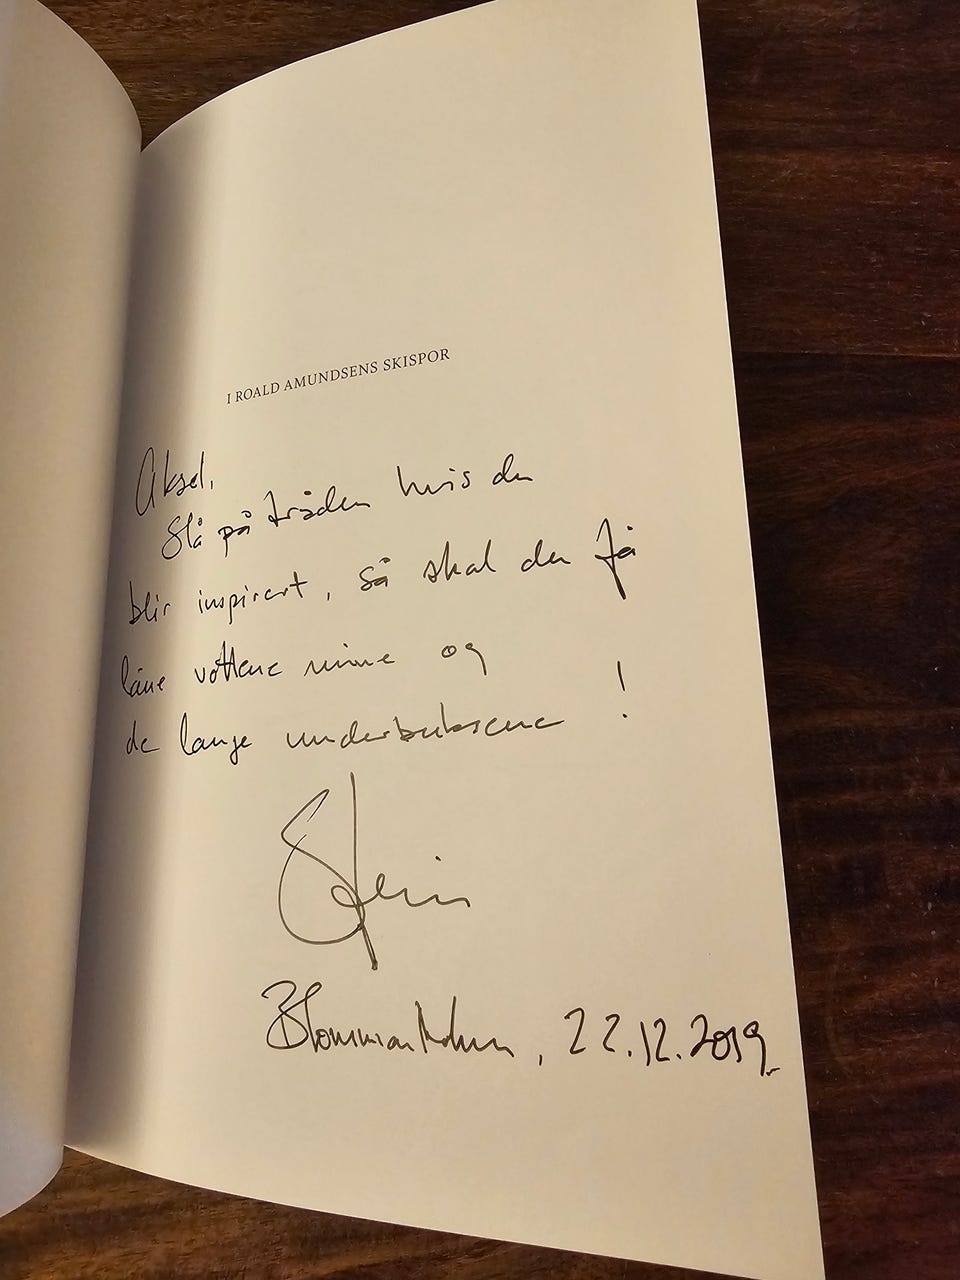 I ROALD AMUNDSENS SKISPOR
Aksel,
Slå på tråden hvis du
blir inspirert, så skal du få
låne vottene mine og
de lange underbuksene !
Stein
, 22.12.2019.